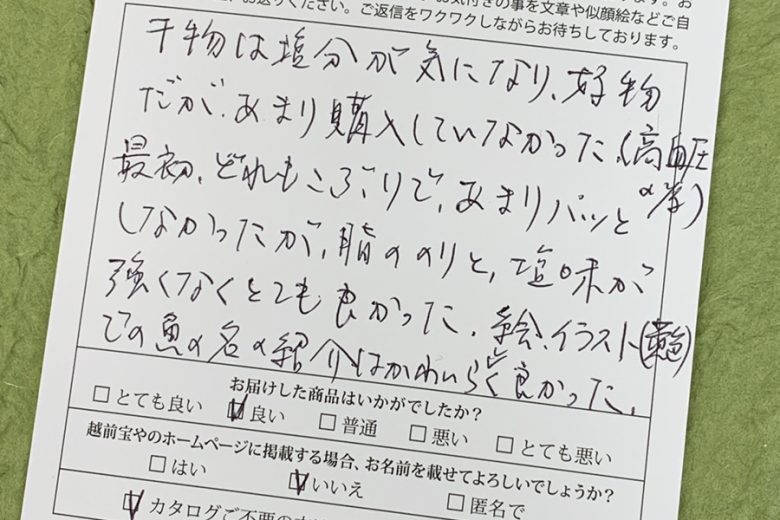 お気付きの事を文章や似顔絵などご自
お送りください。ご返信をワクワクしながらお待ちしております。
干物は塩分が気になり、好物
だが、あまり購入していなかった、(高血圧
の為)
最初、どれもこぶりで、あまりパッと
しなかったが、脂ののりと、塩味が
強くなくとても良かった、絵、イラスト
での魚の名の紹介はかわいらしく良かった、
お届けした商品はいかがでしたか?
□とても良い ☑良い □普通 □悪い □とても悪い
越前宝やのホームページに掲載する場合、お名前を載せてよろしいでしょうか?
□はい ☑いいえ □匿名で
☑カタログご不要の方